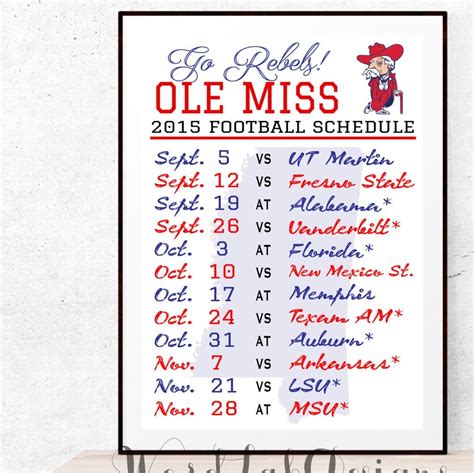 Go Rebels!
OLE MISS
2015 FOOTBALL SCHEDULE
Sept. 5 VS UT Martin
Sept. 12 VS Fresno State
Sept. 19 AT Alabama*
Sept. 26 VS Vanderbilt*
Oct. 3 AT Florida*
Oct. 10 VS New Mexico St.
Oct. 17 AT Memphis
Oct. 24 VS Texam AM*
Oct. 31 AT Auburn*
Nov. 7 VS Arkansas*
Nov. 21 VS LSU*
Nov. 28 AT MSU*